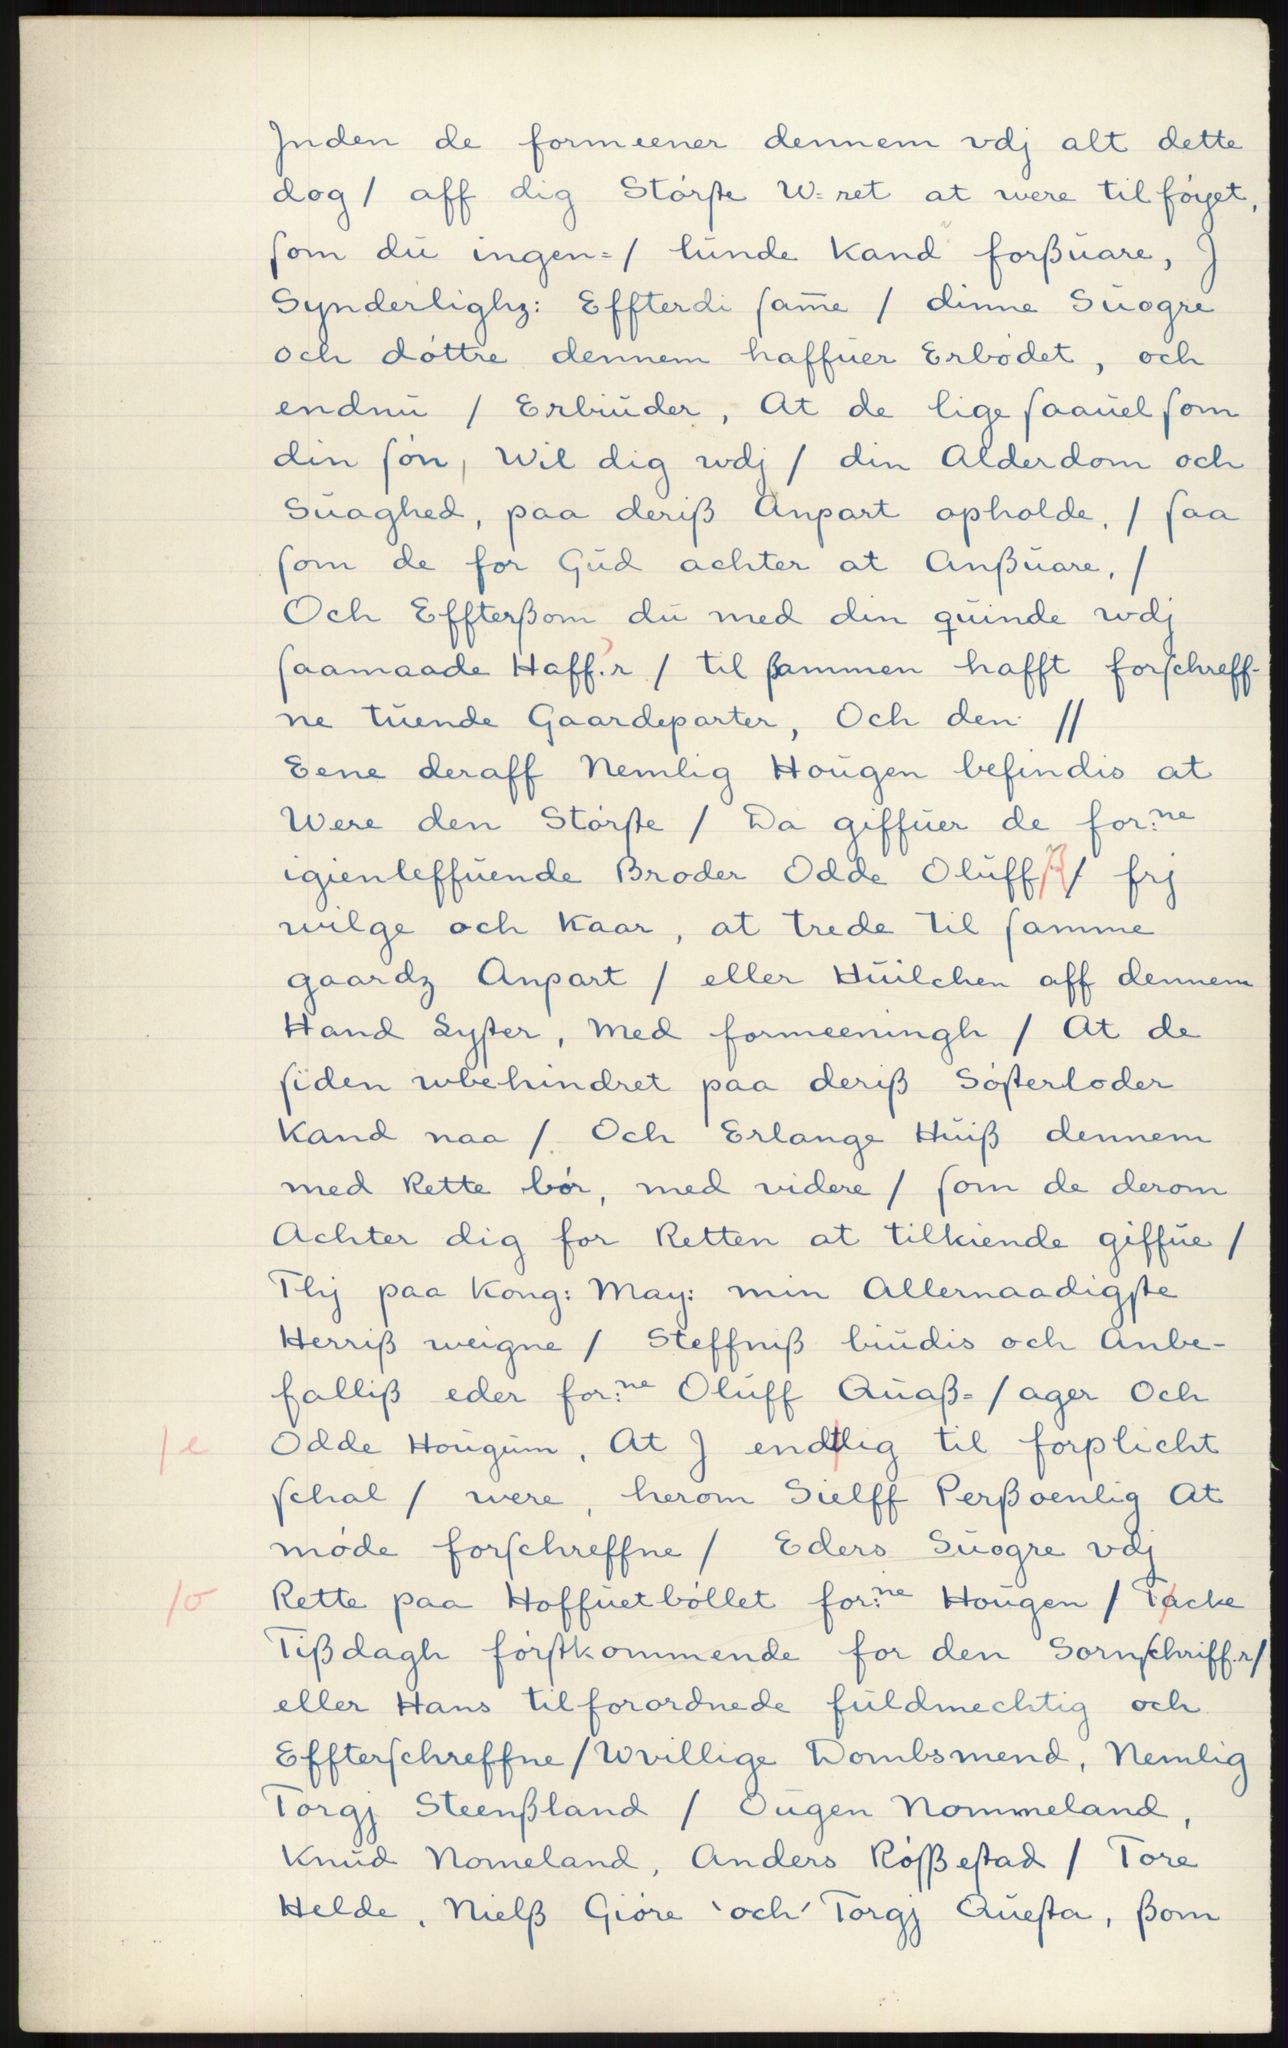 Jnden de formeener dennem vdj alt dette
dog / aff dig Störste W=ret at were tilföyet,
som du ingen=/ lunde Kand forßuare, J
Synderlighz: Effterdi sam̄e / dinne Suogre
och döttre dennem haffuer Erbödet, och
endnu / Erbiuder, At de lige saauel som
din sön, Wil dig wdj / din Alderdom och
Suaghed, paa deriß Anpart opholde, / saa
som de for Gud achter at Anßuare, /
Och Effterßom du med din quinde wdj
saamaade Haff:r / til ßammen hafft forschreff-
ne tuende Gaardeparter, Och den //
Eene deraff Nemlig Hougen befindis at
Were den Störste / Da giffuer de for:ne
igienleffuende Broder Odde Oluffß / frj
wilge och Kaar, at trede til samme
gaardz Anpart / eller Huilchen aff dennem
Hand Lyster, Med formeeningh / At de
siden wbehindret paa deriß Sösterloder
Kand naa / Och Erlange Huiß dennem
med Rette bör, med videre / som de derom
Achter dig for Retten at tilkiende giffue /
Thj paa Kong: May: min Allernaadigste
Herriß weigne / Steffniß biudis och Anbe-
falliß eder for:ne Oluff Quaß=/ager Och
/e Odde Hougum, At J endtlig til forplicht
schal / were, herom Sielff Perßoenlig At
möde forschreffne / Eders Suogre vdj
/o Rette paa Hoffuetböllet for:ne Hougen / Tacke
Tißdagh förstkommende for den Sornschriff:r/
eller Hans tilforordnede fuldmechtig och
Effterschreffne / Wvillige Dombsmend, Nemlig
Torgj Steenßland / Ougen Nommeland,
Knud Nomeland, Anders Rößßestad / Tore
Helde, Nielß Giöre 'och' Torgj Questa, ßom